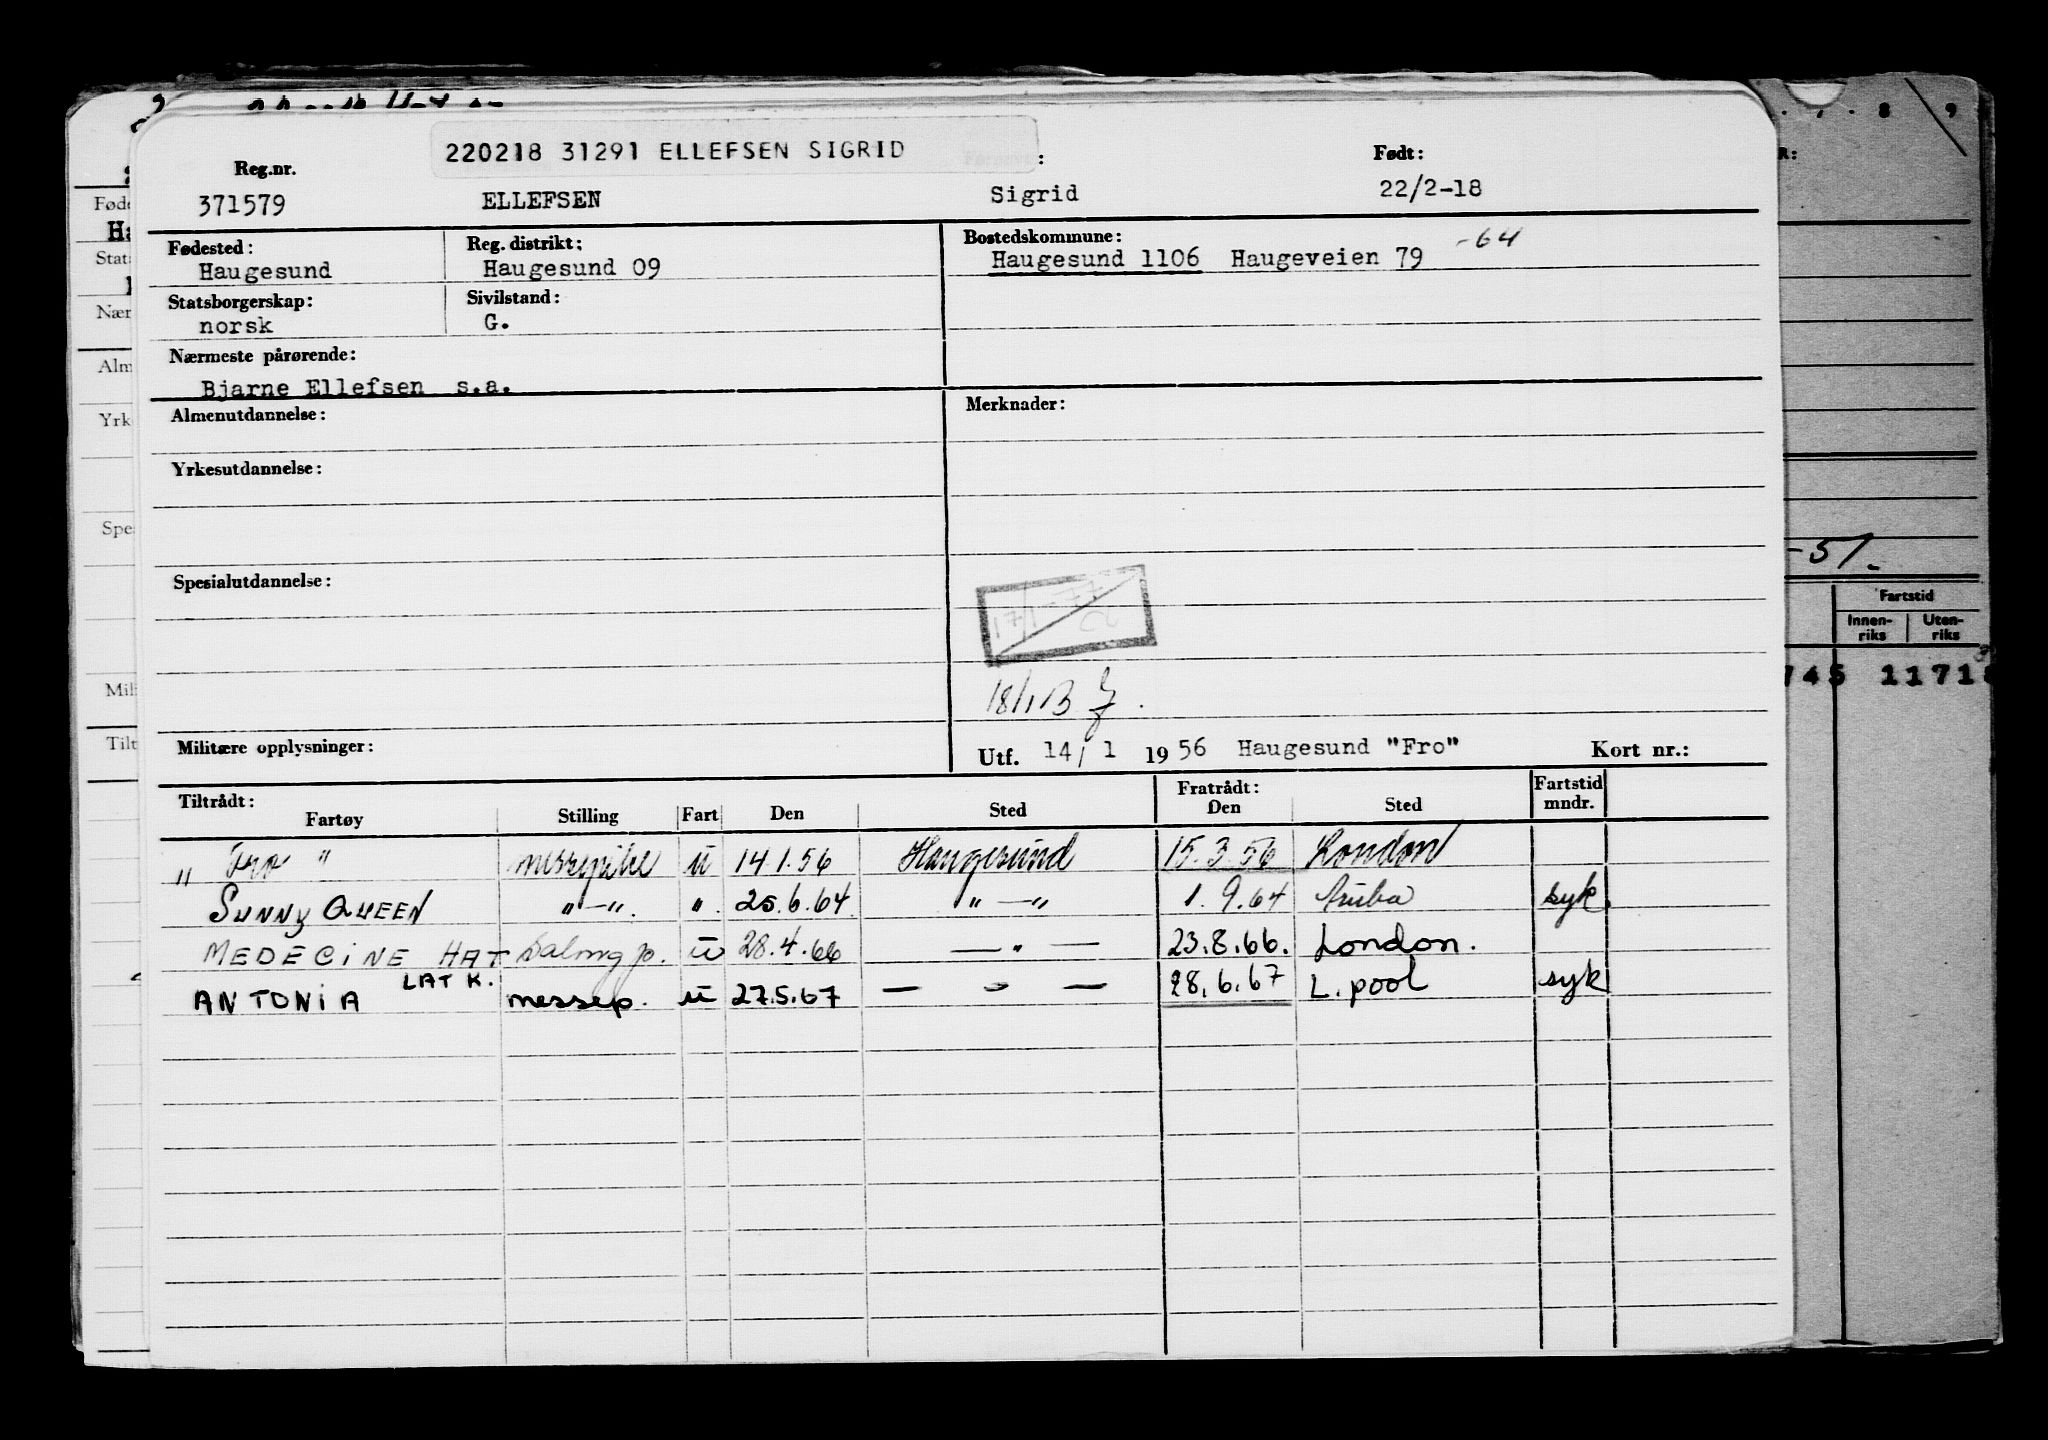 220218 31291 ELLEFSEN SIGRID
Reg.nr. Født:
371579 ELLEFSEN Sigrid 22/2-18
Fødested: Reg. distrikt: Bostedskommune: -64
Haugesund Haugesund 09 Haugesund 1106 Haugeveien 79
Statsborgerskap: Sivilstand:
norsk G.
Nærmeste pårørende:
Bjarne Ellefsen s.a.
Almenutdannelse: Merknader:
Yrkesutdannelse:
Spesialutdannelse:
17/1-77
18/1
Militære opplysninger: Utf. 14/1 1956 Haugesund "Fro" Kort nr.:
Tiltrådt: Fratrådt: Fartstid
Fartøy Stilling Fart Den Sted Den Sted mndr.
„ Fro " messepike u 14 1.56 Haugesund 15.3.56 London
SUNNY QUEEN „—„. „. 25.6.64 „—„ 1.9.64 Aruba syk.
MEDECINE HAT salongp. u 28.4.66 —„— 23.8.66. London.
LATK.
ANTONIA messep. u 27.5.67 — „ — 28.6.67 L.pool syk
Føde
Ha
Stats
Nær
Alm
Yrk
Spe
Mil
Tilt
8 9
R:
-51.
Fartstid
Innen-
riks
Uten-
riks
745 1171